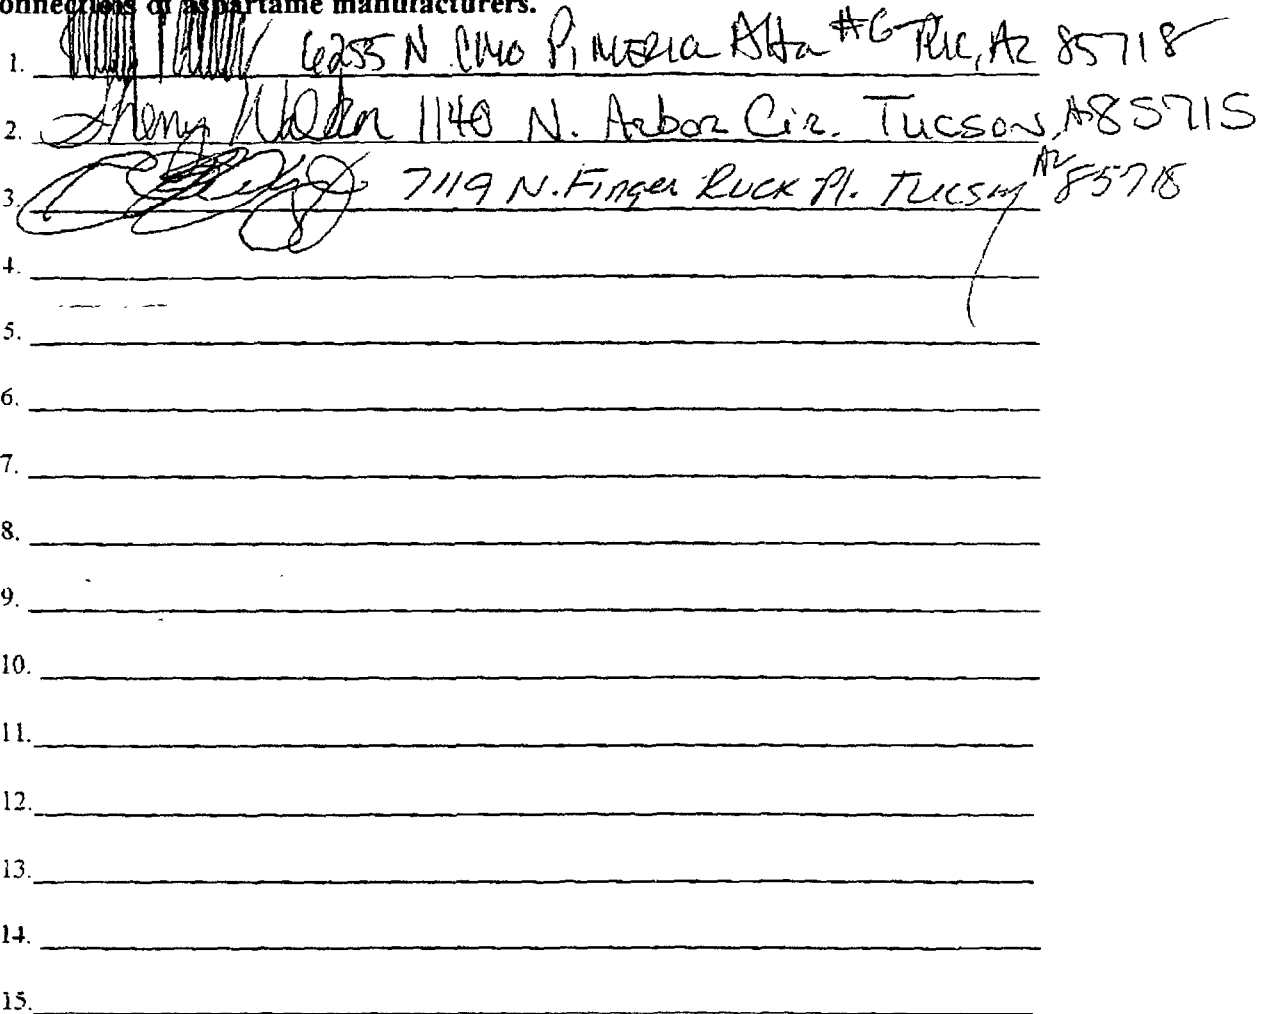 onnections of aspartame manufacturers.
1. 6255 N. CMO PIMERIA Alta #6 Tuc, Az 85718
2. Sherry Walden 1140 N. Arbor Cir. Tucson, A 85715
3. 7119 N. Finger Rock Pl. Tucson Az 85718
4.
5.
6.
7.
8.
9.
10.
11.
12.
13.
14.
15.